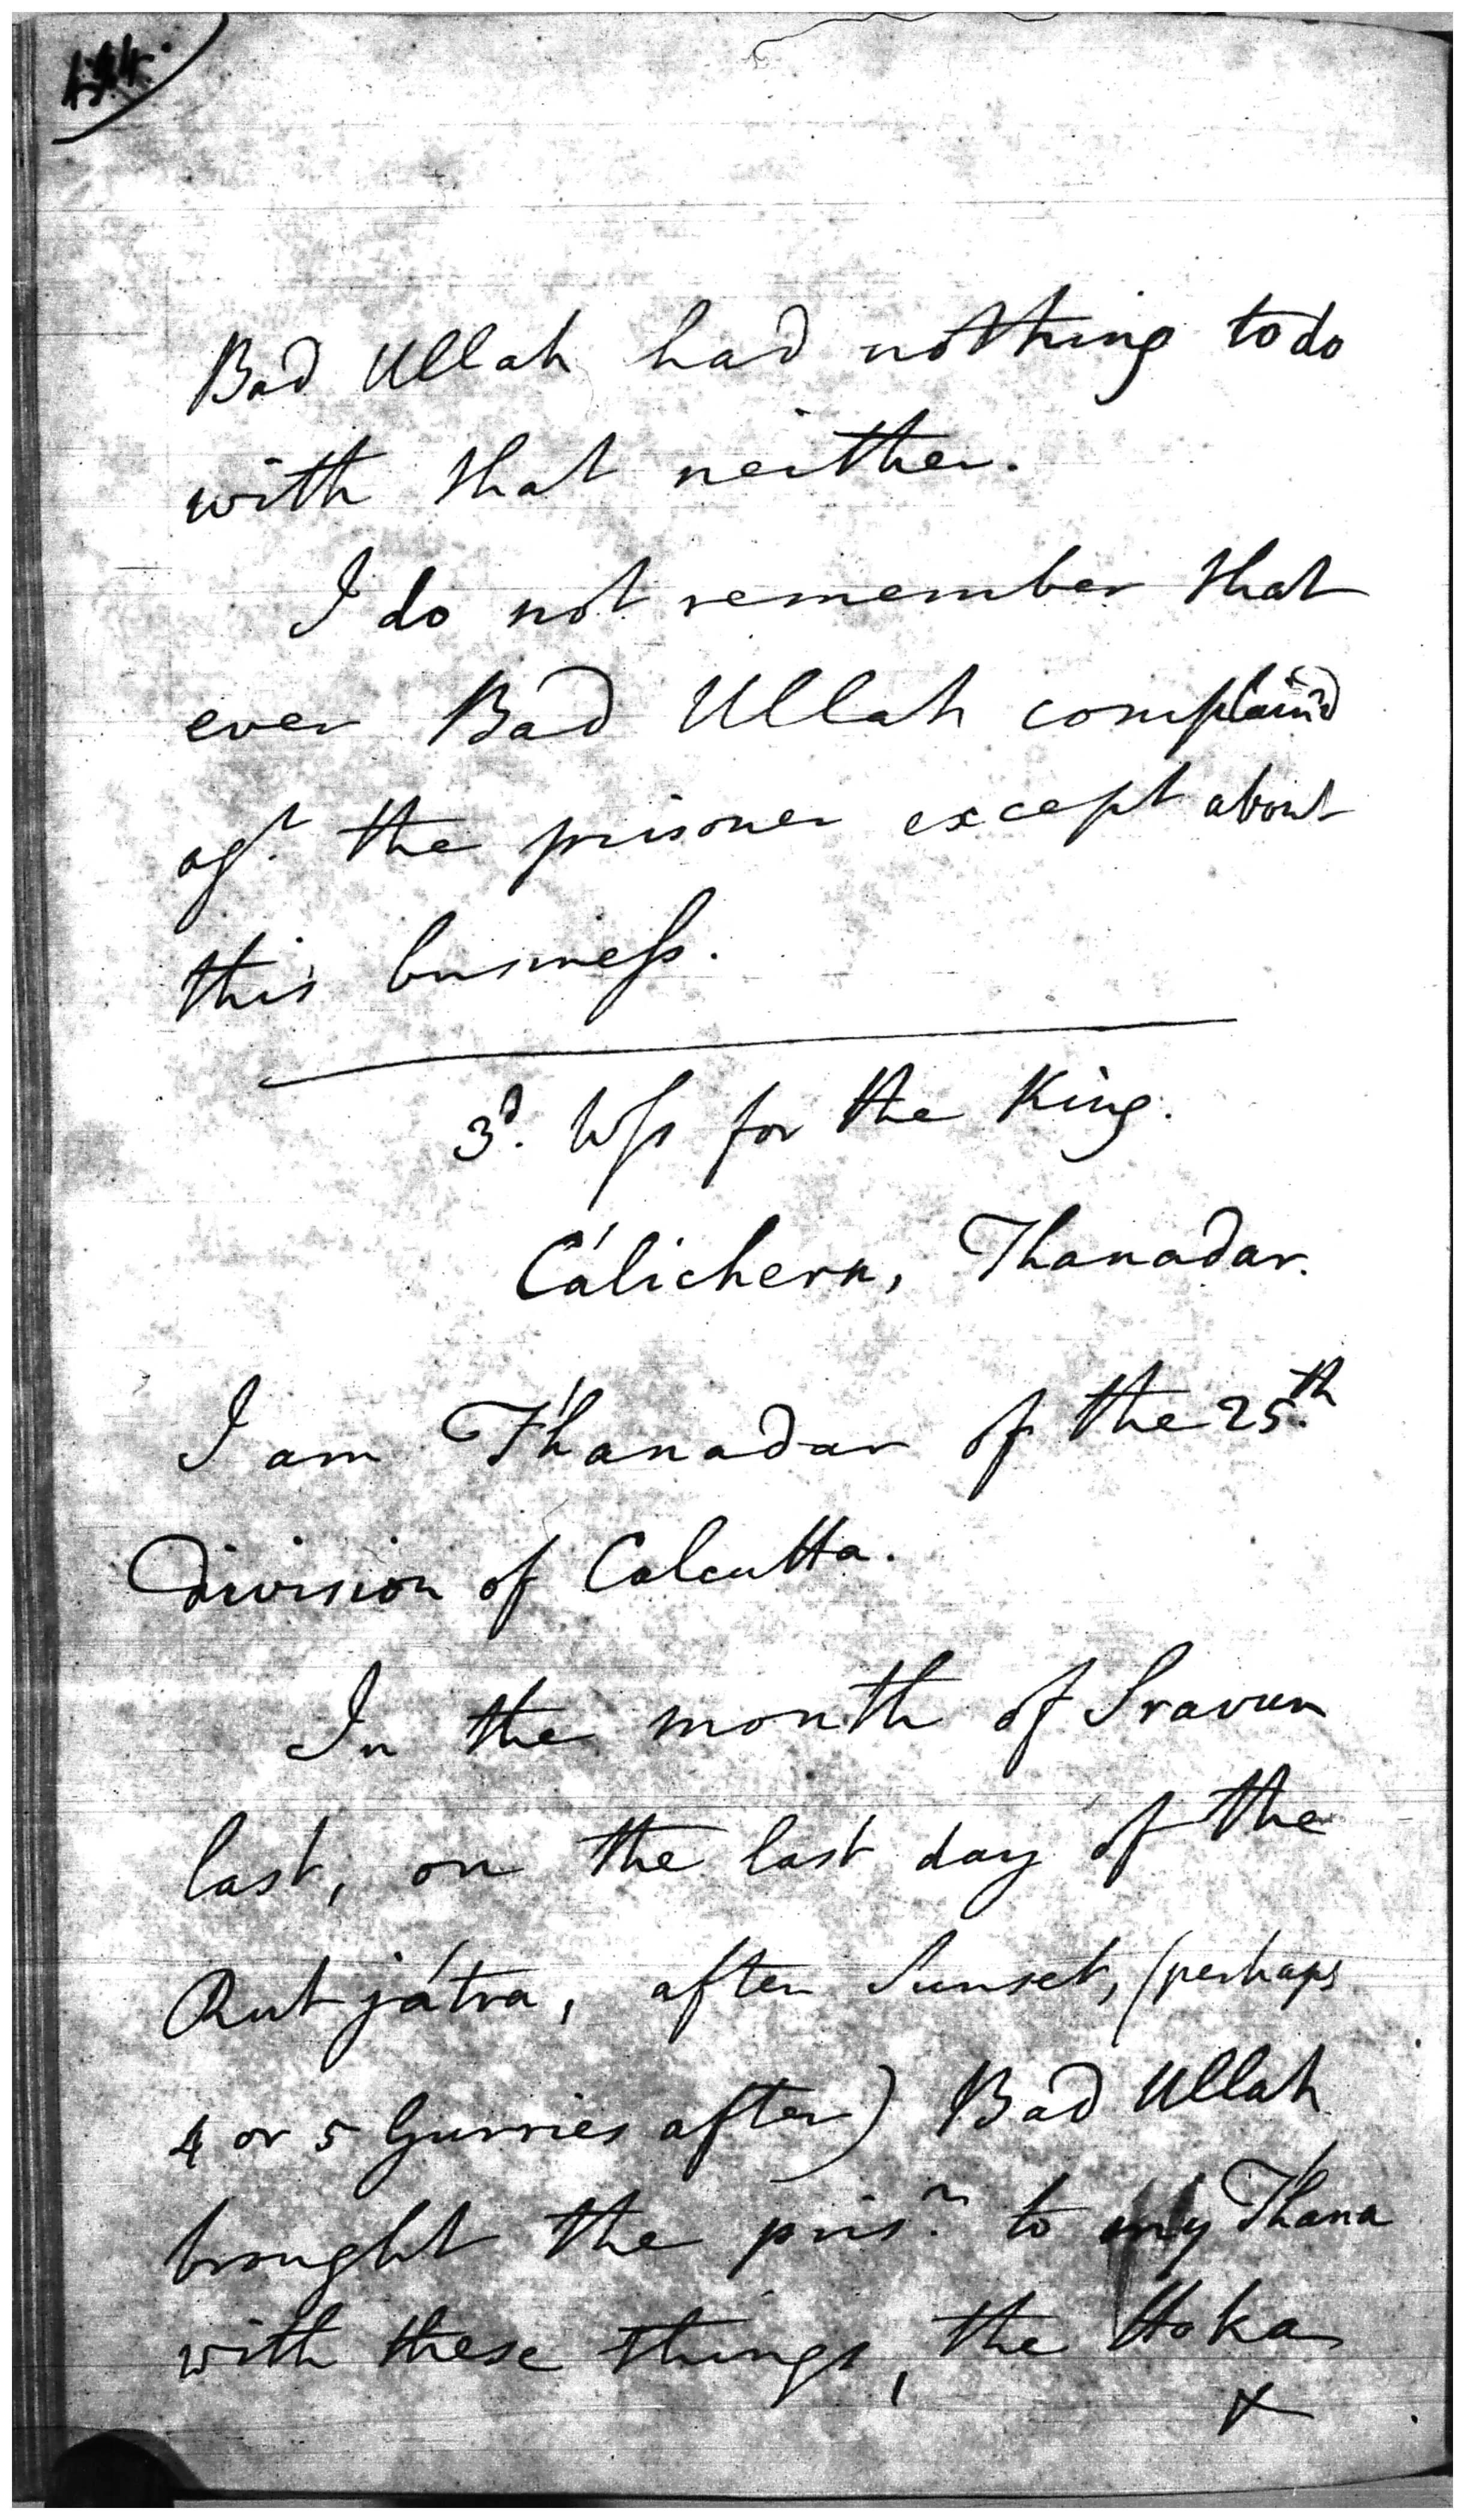 Bad Ullah had nothing to do
with that neither.
I do not remember that
ever Bad Ullah complain'd
agt. the prisoner except about
this business.
3d. Wss for the King.
Cálichern, Thanadar.
I am T'hanadar of the 25th.
Division of Calcutta.
In the month of Sravun
last, on the last day of the
Rut játra, after Sunset, (perhaps
4 or 5 Gurries after) Bad Ullah
brought the prisr. to my Thana
with these things, the Hoka
x